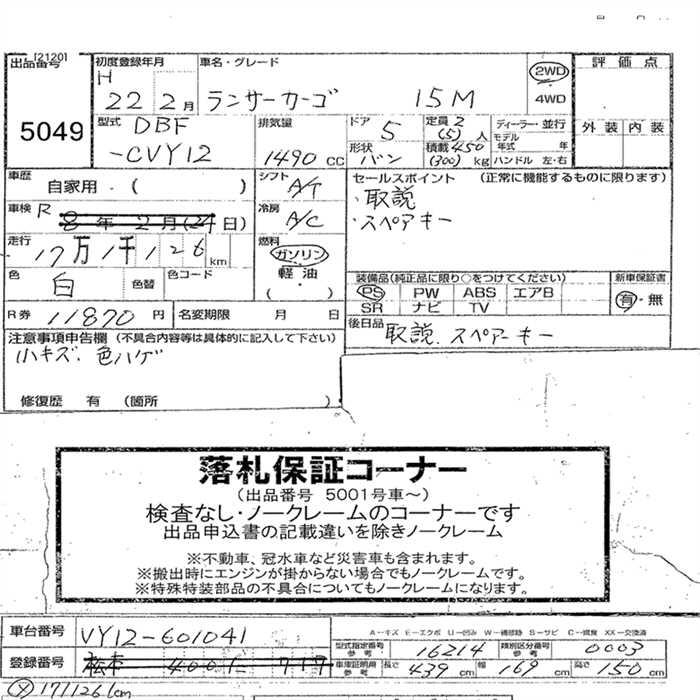 [2120]
出品番号 初度登録年月 車名・グレード 評価点
H 22 2月 ランサーカーゴ 15M 2WD
4WD
5049 型式 DBF 排気量 ドア 5 定員 2 (5) 人 ディーラー・並行 外装 内装
-CVY12 1490 cc 形状 バン 積載 450 (300) kg モデル年式 年
ハンドル 左・右
車歴 自家用・( ) シフト A/T セールスポイント (正常に機能するものに限ります)
・取説
車検 R 8年2月(24日) 冷房 A/C ・スペアキー
走行 17万1千126km 燃料 ガソリン
軽油・
( )
色 白 色替 色コード 装備品(純正品に限り○をつけてください) 新車保証書
PS PW ABS エアB 有・無
SR ナビ TV
R券 11870円 名変期限 月 日 後日品 取説.スペアーキー
注意事項申告欄 (不具合内容等は具体的に記入して下さい)
小キズ、色ハゲ
修復歴 有 (箇所 )
落札保証コーナー
(出品番号 5001号車~)
検査なし・ノークレームのコーナーです
出品申込書の記載違いを除きノークレーム
※不動車、冠水車など災害車も含まれます。
※搬出時にエンジンが掛からない場合でもノークレームです。
※特殊特装部品の不具合についてもノークレームになります。
車台番号 VY12-601041 A-キズ E-エクボ U-凹み W-補修跡 S-サビ C-腐食 XX-交換済
型式指定番号 参考 16214 類別区分番号 参考 0003
登録番号 松本 400 717 車庫証明用 参考 長さ 439 cm 幅 169 cm 高さ 150 cm
171126km